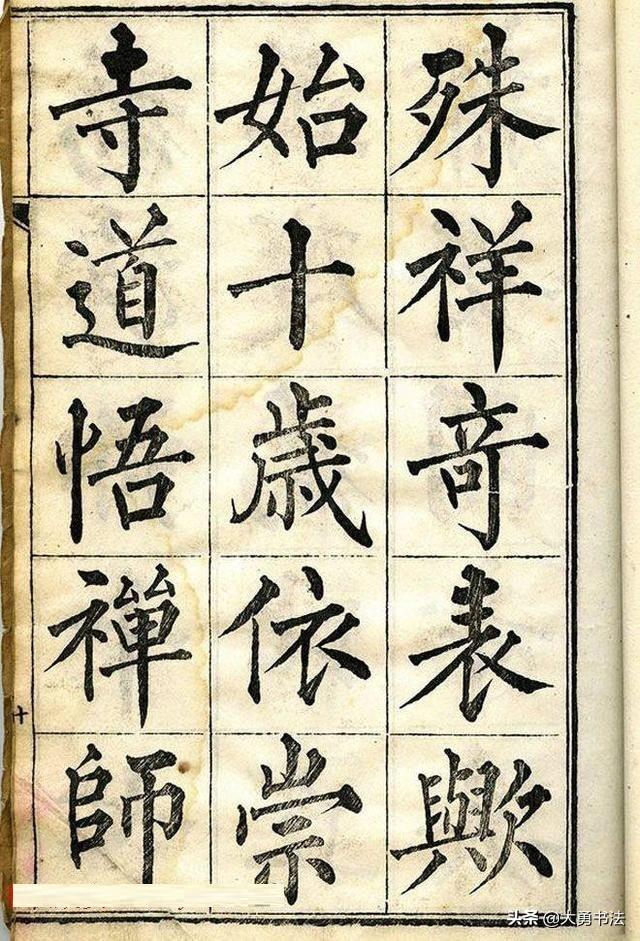 殊祥竒表歟
始十歲依崇
寺道悟禪師
十
头条 @大勇书法